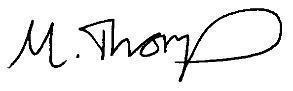 M. Thorp